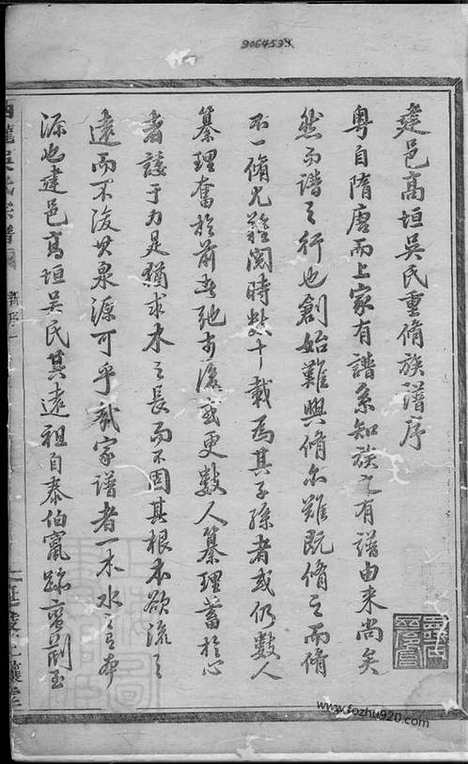 9064598
建邑高垣吳氏重脩族譜序
粵自隋唐而上家有譜系知族之有譜由來尚矣
然而譜之行也創始難興脩尔難既脩之而脩
不一脩尤難閱時數十載為其子孫者或仍數人
纂理奮於前者弛於後或更數人纂理蓄於心
者諉于力是猶求木之長而不固其根本欲流之
遠而不浚其泉源可乎哉家譜者一木水之有本
源也建邑高垣吳氏其遠祖自泰伯竄跡
吳氏宗譜
www.fozhu920.com